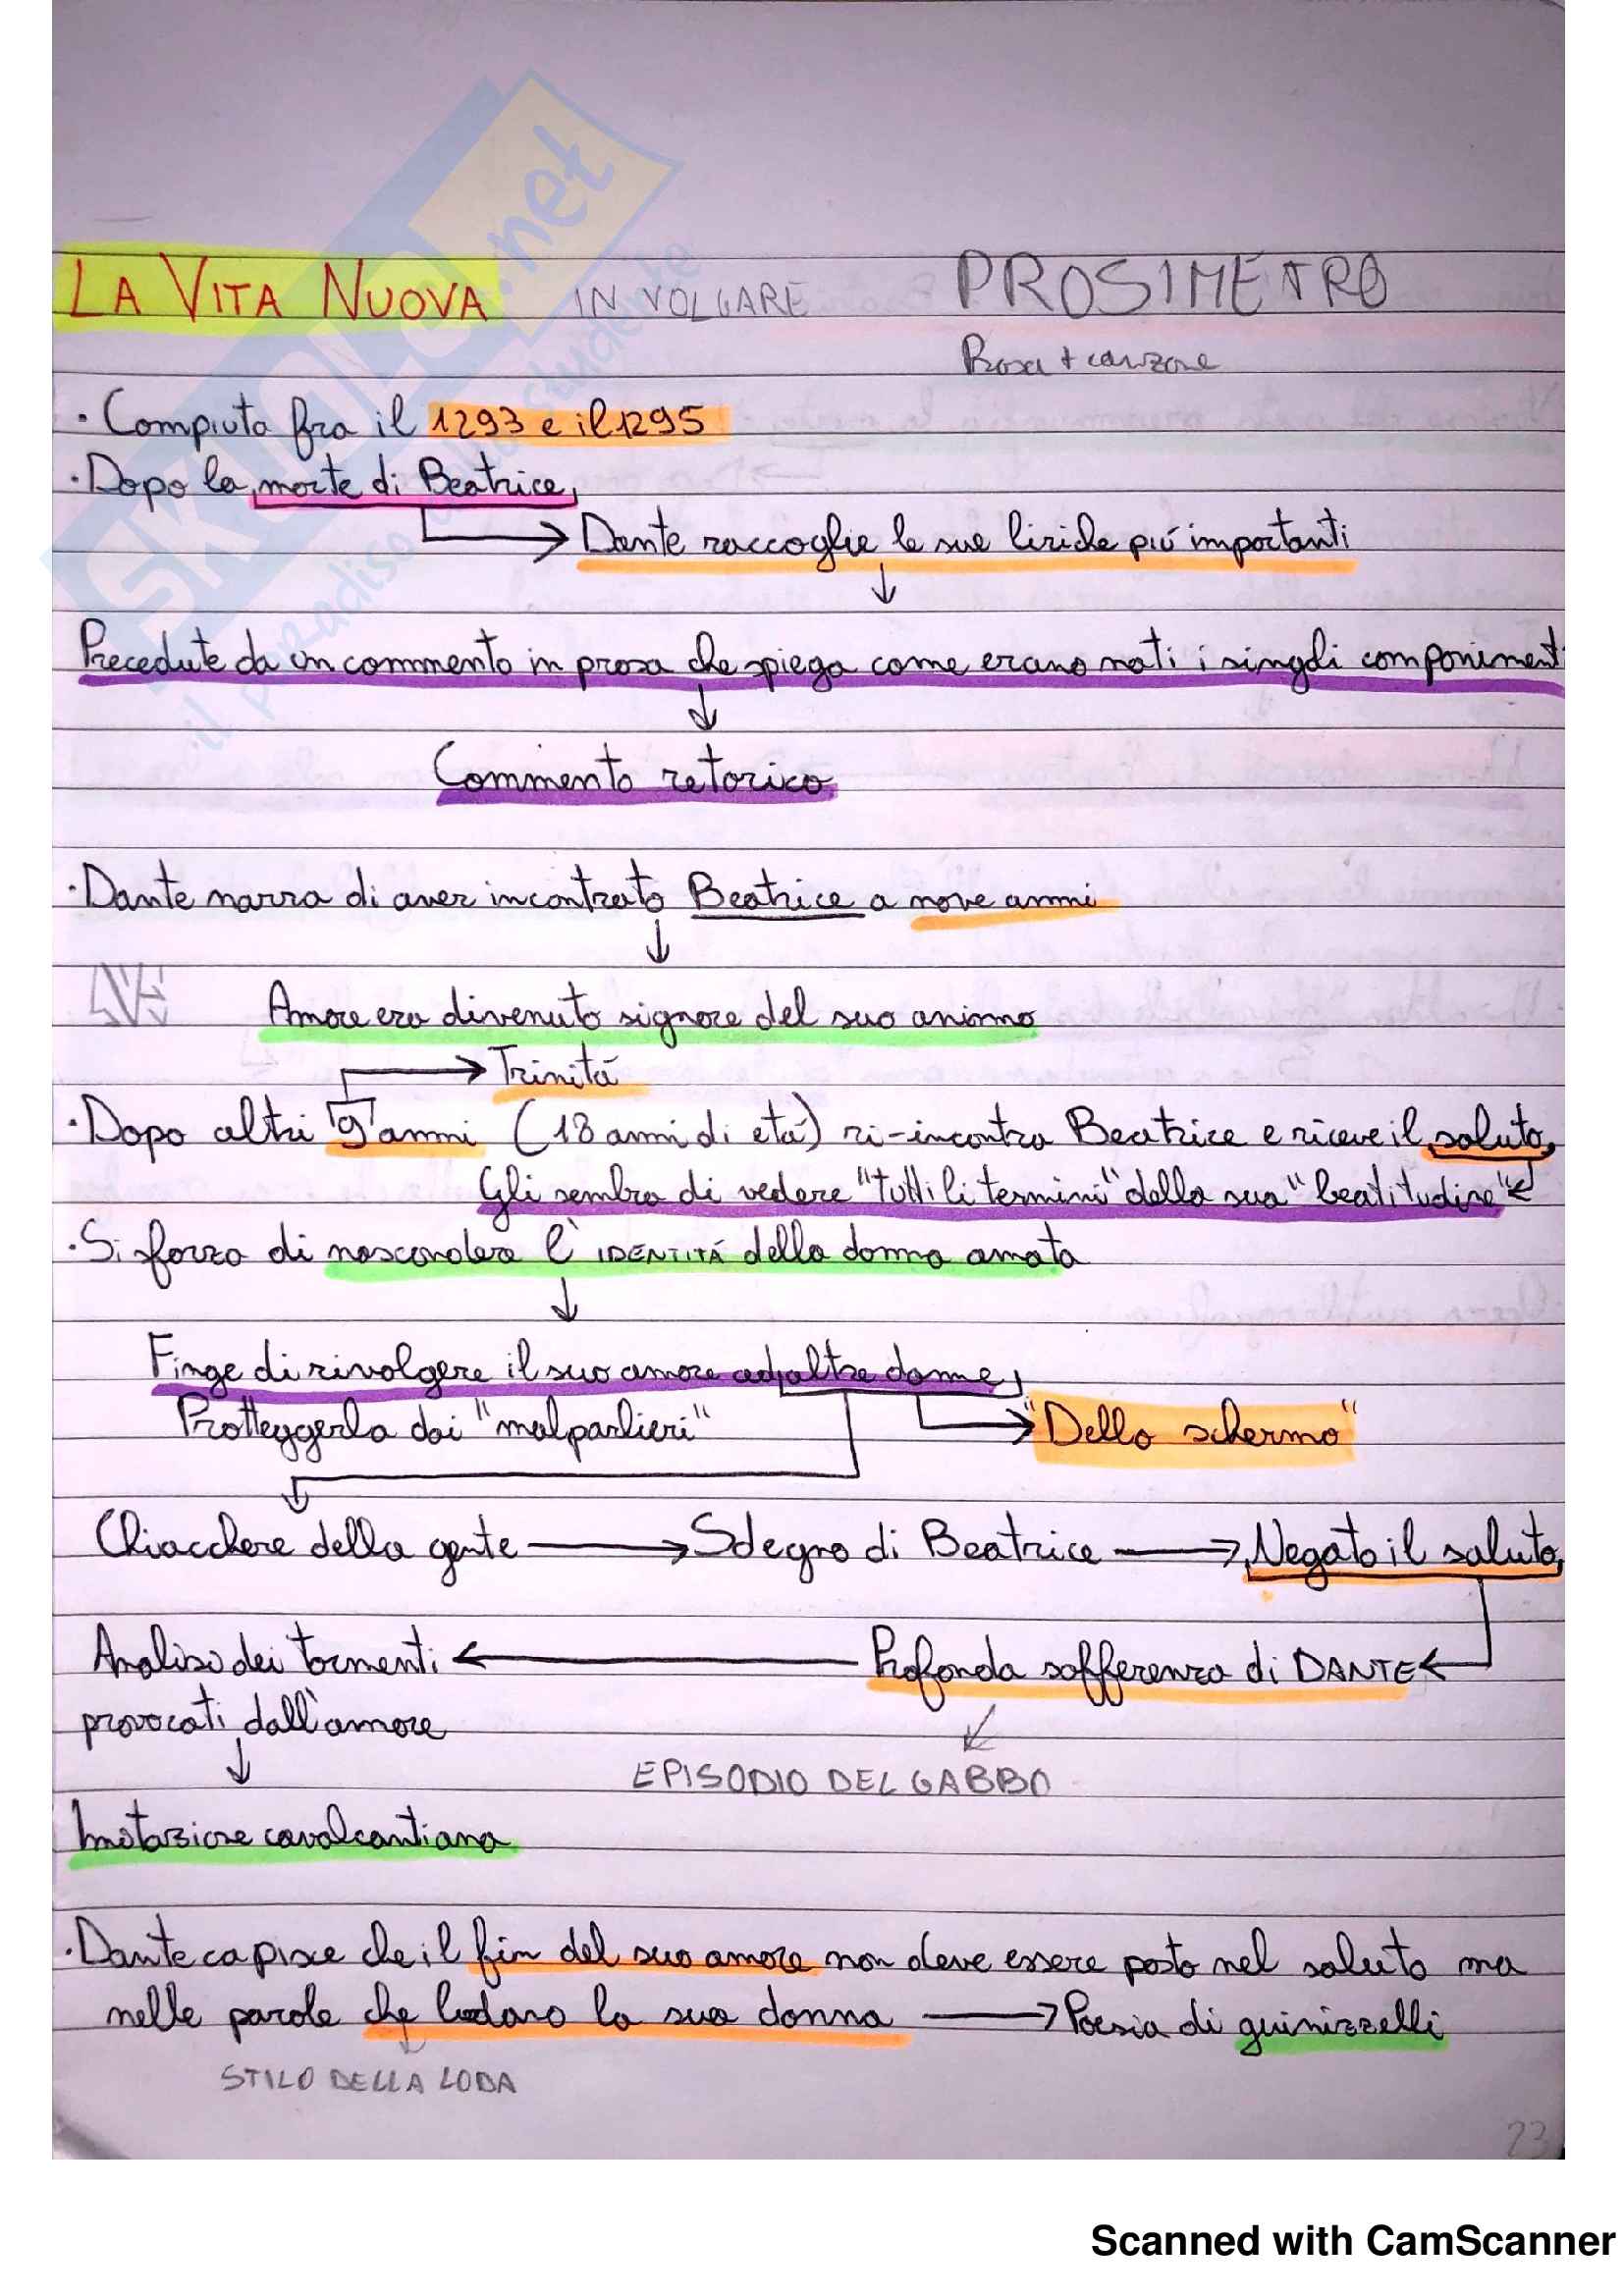 LA VITA NUOVA IN VOLGARE PROSIMETRO
Prosa + canzone
· Compiuta fra il 1293 e il 1295
· Dopo la morte di Beatrice
→ Dante raccoglie le sue liriche più importanti
↓
Precedute da un commento in prosa che spiega come erano nati i singoli componimenti
↓
Commento retorico
· Dante narra di aver incontrato Beatrice a nove anni
↓
Amore era divenuto signore del suo animo
→ Trinitá
· Dopo altri 9 anni (18 anni di etá) ri-incontra Beatrice e riceve il saluto
Gli sembra di vedere "tutti li termini" della sua "beatitudine" ←
· Si forza di nascondere l'IDENTITÁ della donna amata
↓
Finge di rivolgere il suo amore ad altre donne
Protteggerla dai "malparlieri" → "Dello schermo"
Chiacchere della gente → Sdegno di Beatrice → Negato il saluto
Analisi dei tormenti ← Profonda sofferenza di DANTE ←
provocati dall'amore
↓ EPISODIO DEL GABBO
Imitazione cavalcantiana
· Dante capisce che il fin del suo amore non deve essere posto nel saluto ma
nelle parole che lodano la sua donna → Poesia di guinizzelli
STILO DELLA LODA
23
SKUOLA.net
il paradiso dello studente
Scanned with CamScanner